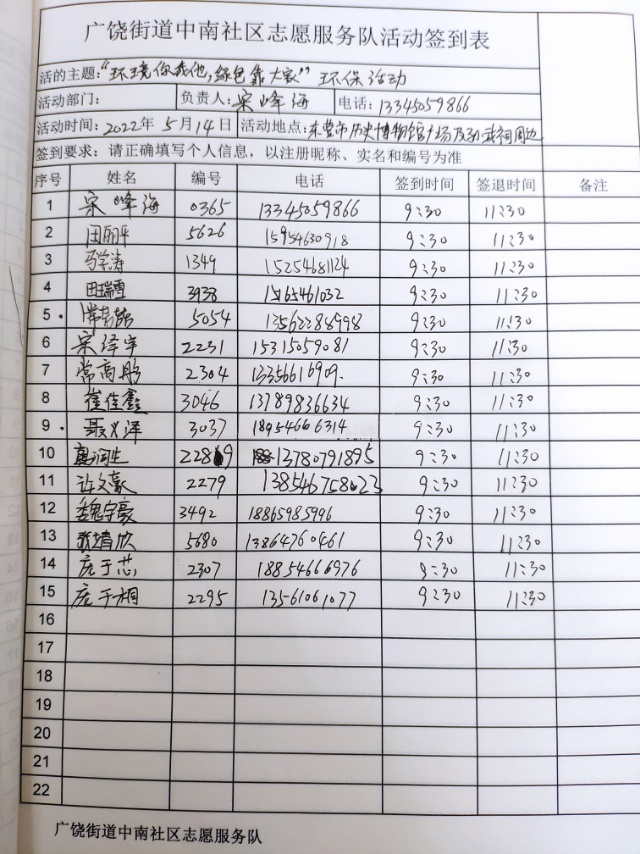 广饶街道中南社区志愿服务队活动签到表
活的主题：“环境你我他，绿色靠大家”环保活动
活动部门： 负责人：宋峰海 电话：13345059866
活动时间：2022年5月14日 活动地点：东营市历史博物馆广场及孙武祠周边
签到要求：请正确填写个人信息，以注册昵称、实名和编号为准
序号 姓名 编号 电话 签到时间 签退时间 备注
1 宋峰海 0365 13345059866 9:30 11:30
2 田丽华 5626 15954630918 9:30 11:30
3 马学涛 1349 15254681124 9:30 11:30
4 田瑞雪 3938 15165461032 9:30 11:30
5 5054 13562288998 9:30 11:30
6 宋泽宇 2231 15315059081 9:30 11:30
7 常高彤 2304 13356616909 9:30 11:30
8 崔佳鑫 3046 13789836634 9:30 11:30
9 聂义泽 3037 18954666314 9:30 11:30
10 2289 13780791895 9:30 11:30
11 许文豪 2279 138546758023 9:30 11:30
12 魏宇豪 3492 18865985996 9:30 11:30
13 5680 13864760461 9:30 11:30
14 庞于芯 2307 18854666976 9:30 11:30
15 庞于桐 2295 13561061077 9:30 11:30
16
17
18
19
20
21
22
广饶街道中南社区志愿服务队